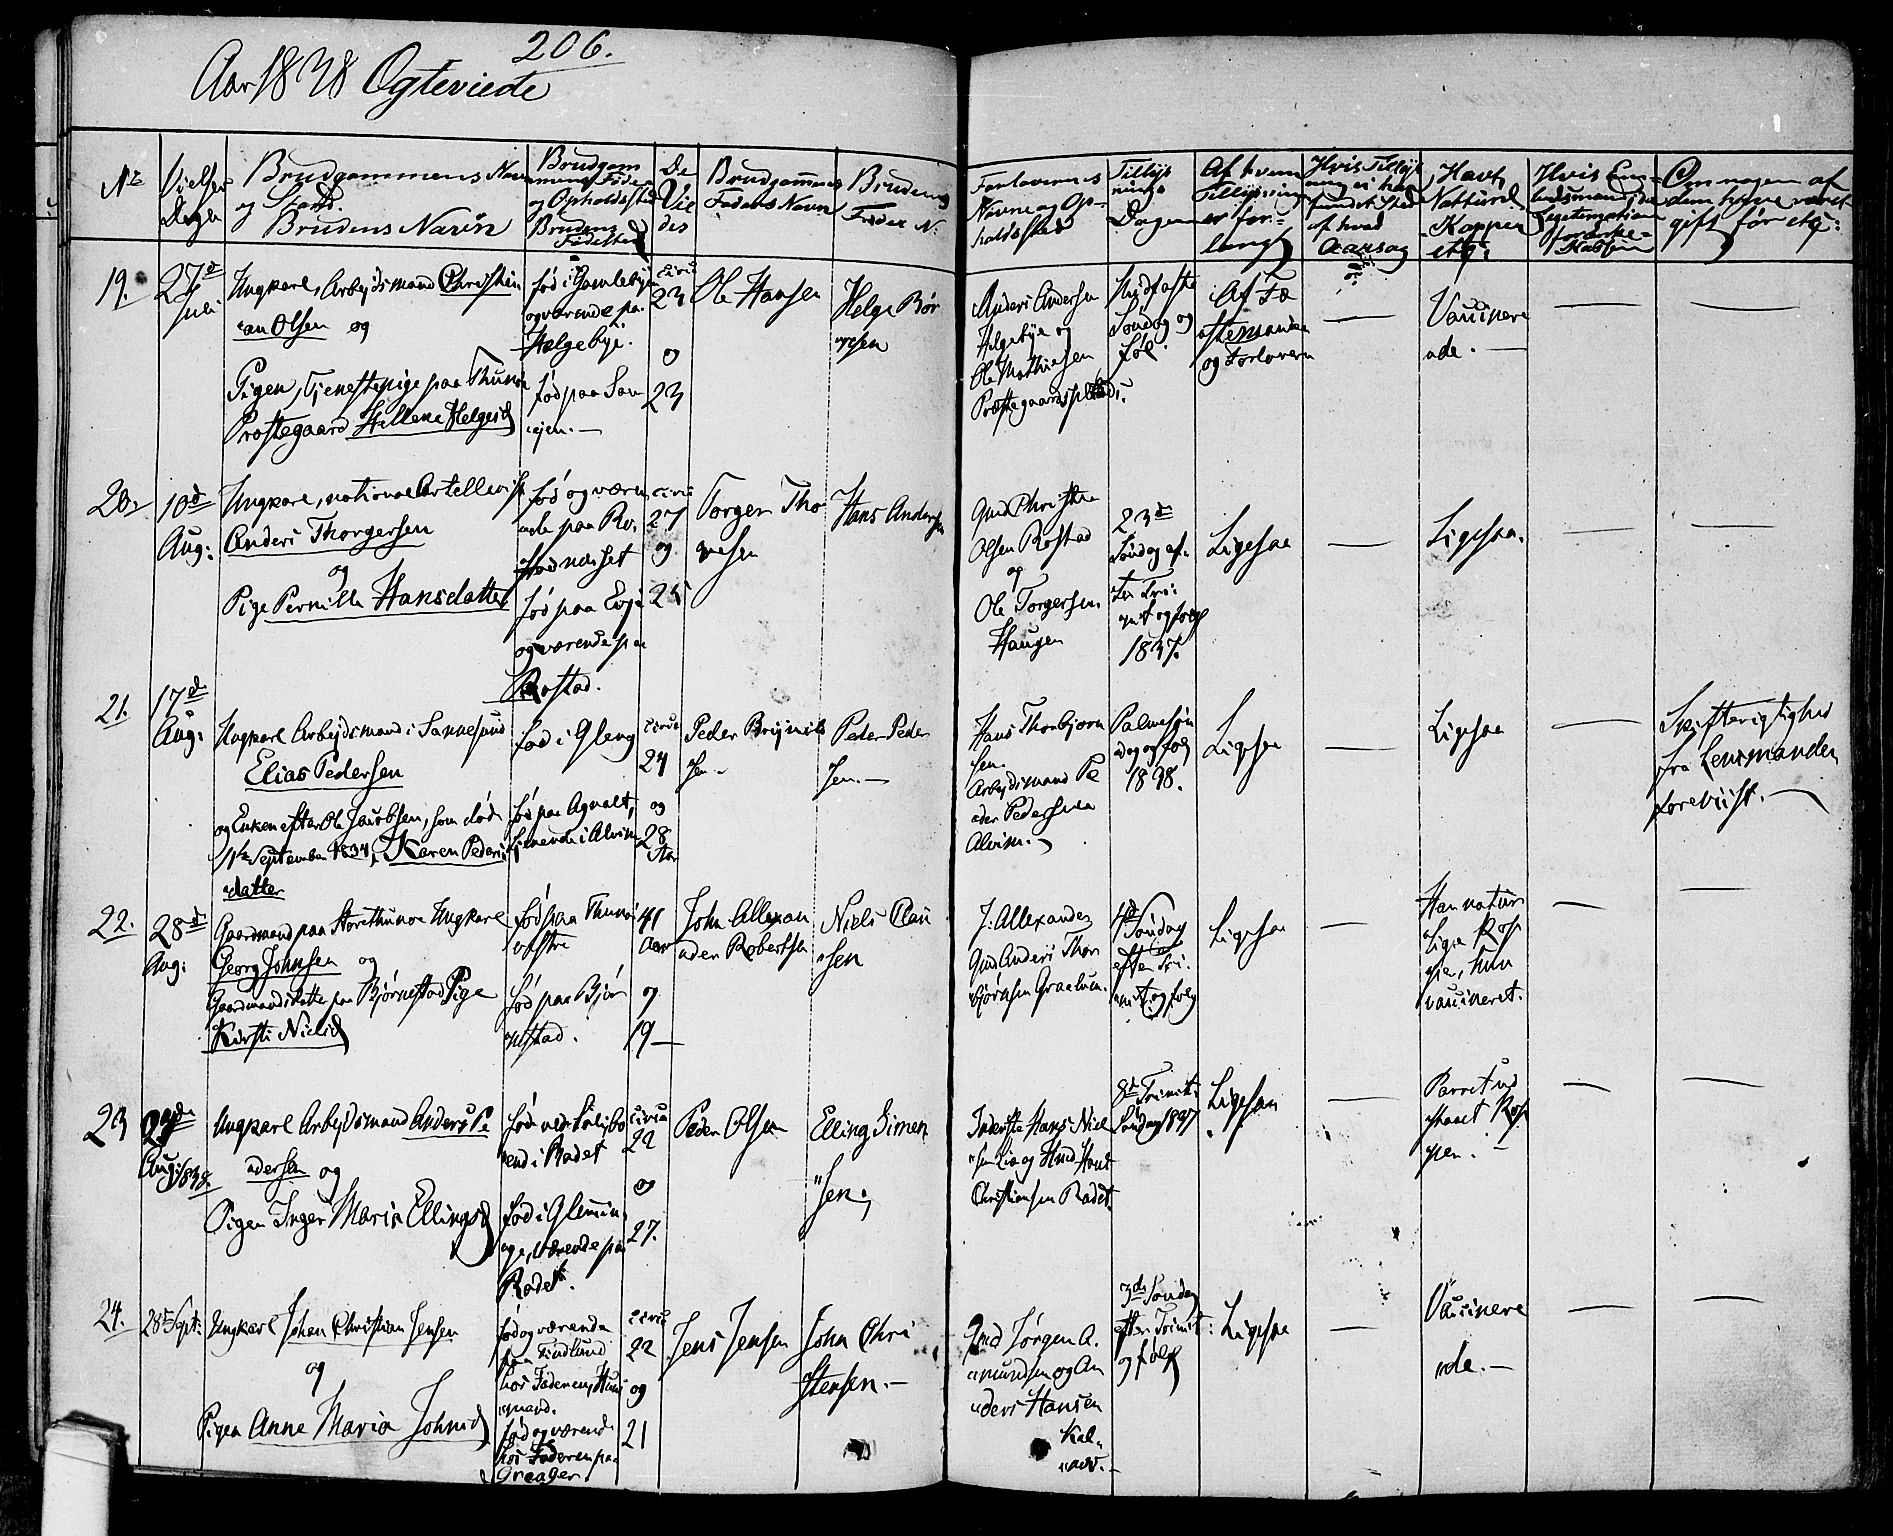 206.
Aar 1838 Ogteviede
No
Vielses Dagen
Brudgommens Navn
og Stand.
Brudens Navn
Brudgom
mens Føde
og Opholdssted
Brudens
Fødested
De
Vie
des
Brudgommens
Faders Navn
Brudens
Fader N:
Forlovernes
Navne og Op-
holdssted
Tillys
nings
Dagen
Af hvem
Tillysning
er for-
langt
Hvis Tillys
ning ei har
fundet Sted
af hvad
Aarsag
Havt
Naturl.
Kopper
etc:
Om nogen af
dem have været
gift før etc:
19.
27d
Juli
Ungkarl, Arbejdsmand Christi
an Olsen og
Pigen, Tjenestepige paa Thunø
Præstegaard Hellene Helgesd
fød i Gamlebyen
og værende paa
Helgebye.
fød paa
circa
23
og
23
Ole Hansen
Helge Bør
gesen
Anders Andersen
Helgebye og
Ole Mathiesen
Præstegaards
Midfaste
Søndag og
føl.
Af Fæ
stemanden
og Forlovern
—
Vaccinere
ade. —
—
—
20.
10d
Aug:
Ungkarl, national Artellerist
Anders Thorgersen
og
Pige Pernille Hansdatter
fød og være
nde paa
fød paa Evje
og værende paa
Rostad.
circa
27
og
25
Torger Tho
gesen
Hans Andersen
Gmd Christen
Olsen Rostad
og
Ole Torgersen
Haugen
23de
Søndag ef-
ter Tri-
nit og følg
1837.
Ligesaa
—
Ligesaa.
—
—
21.
17d
Aug:
Ungkarl Arbejdsmand i Sannesund
Elias Pedersen
og Enken efter Ole Jacobsen, som døde
11te September 1834, Karen Peders
datter
fød i Gleng
fød paa Agnalt,
tjenende i Alvim
circa
24
og
28
Aar
Peder Brynils
sen. -
Peder Peder
sen. —
Hans Thorbjørn
sen.
Arbejdsmand Pe
der Pedersen
Alvim.
Palmesøn
dag og følg
1838.
Ligesaa
—
Ligesaa
—
Skifterigtighed
fra Lensmanden
forevist. —
22.
28d
Aug:
Gaardmand paa Storethunø Ungkarl
Georg Johnsen og
Gaardmandsdatter paa Bjørnestad Pige
Kirsti Nielsd
fød paa Thunø
østre
fød paa Bjør
nestad.
41
Aar
og
19 —
John Allexan
der Robertsen
Niels Clau
sen
J. Allexander
Gmd Anders Thor
bjørnsen Graalum.
4d Søndag
efter Tri-
nit. og følg
Ligesaa
—
Han natur
lige Kop
per, hun
vaccineret.
—
—
23
29de
Aug: 1838.
Ungkarl Arbejdsmand Anders Pe
dersen og
Pigen Inger Maria Ellingsd
fød i Glemin
ge, værende paa
Radet.
circa
22
og
27.
Peder Olsen
Elling Simen
sen.
Inderste Hans Niel
sen Lia og Hmd Hans
Christiansen Radet.
8d Trinit:
Søndag 1837
Ligesaa
—
Parret ud
staaet Kop
per. —
—
—
24.
28d Sept:
Ungkarl Johan Christian Jensen
og
Pigen Anne Maria Johnsd
fød og værende
paa Sindlund
hos Faderen, Huus
mand.
fød og værende
hos Faderen paa
Greager
circa
22
og
21
Jens Jensen
John Chri
stensen. —
Gmd Jørgen A
mundsen og An
ders Hansen
Kal-
næs. -
3de Søndag
efter Trinit:
og følg
Ligesaa
—
Vaccinere
de. —
—
—